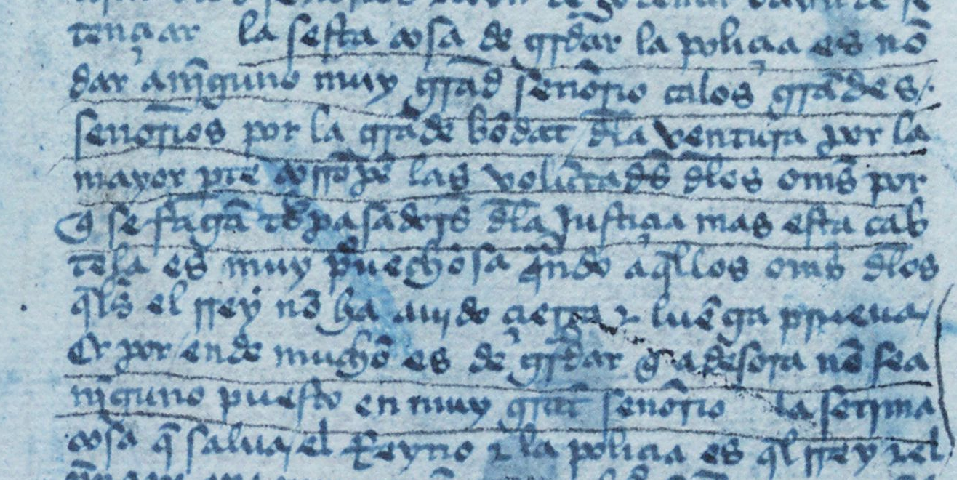 tençiar la sesta cosa de gr̃dar la poliçia es nõ
dar a nĩguno muy grãd señorio ca los grãdes
señorios por la grãde bõdat d̃la ventura por la
mayor pte corrõpẽ las volũtades d̃los om̃s por
q̃ se fagã tr̃pasadores d̃la justiçia mas esta cab
tela es muy puechosa q̃ndo aq̃llos om̃s d̃los
q̃les el rrey nõ ha auido çierta ⁊ luẽga prueua
Et por ende mucho es de gr̃dar q̃ a desora nõ sea
nĩguno puesto en muy grãt señorio la setima
cosa q̃ salua el Reyno ⁊ la poliçia es q̃l rrey ⁊ el